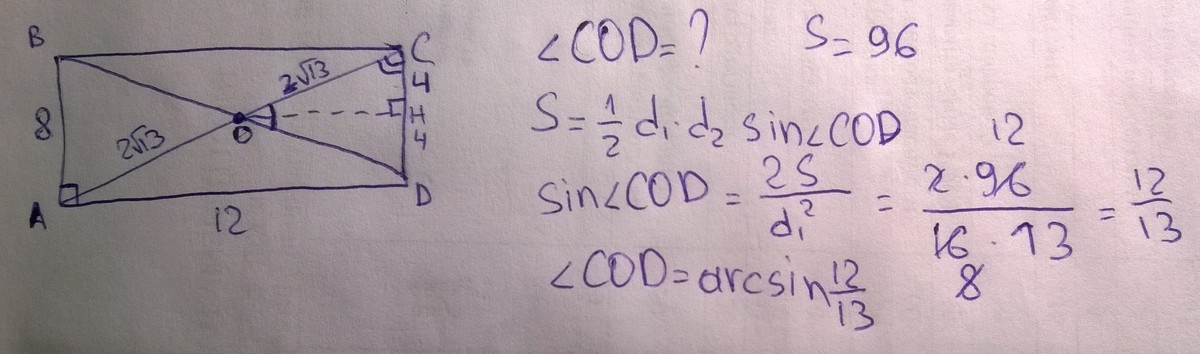 B
C
8
2√13
2√13
O
4
H
4
A
12
D
∠COD=? S=96
S=1/2 d₁·d₂ sin∠COD
sin∠COD = 2S/d₁² = 2·96/16·13 = 12/13
12
8
∠COD=arcsin 12/13